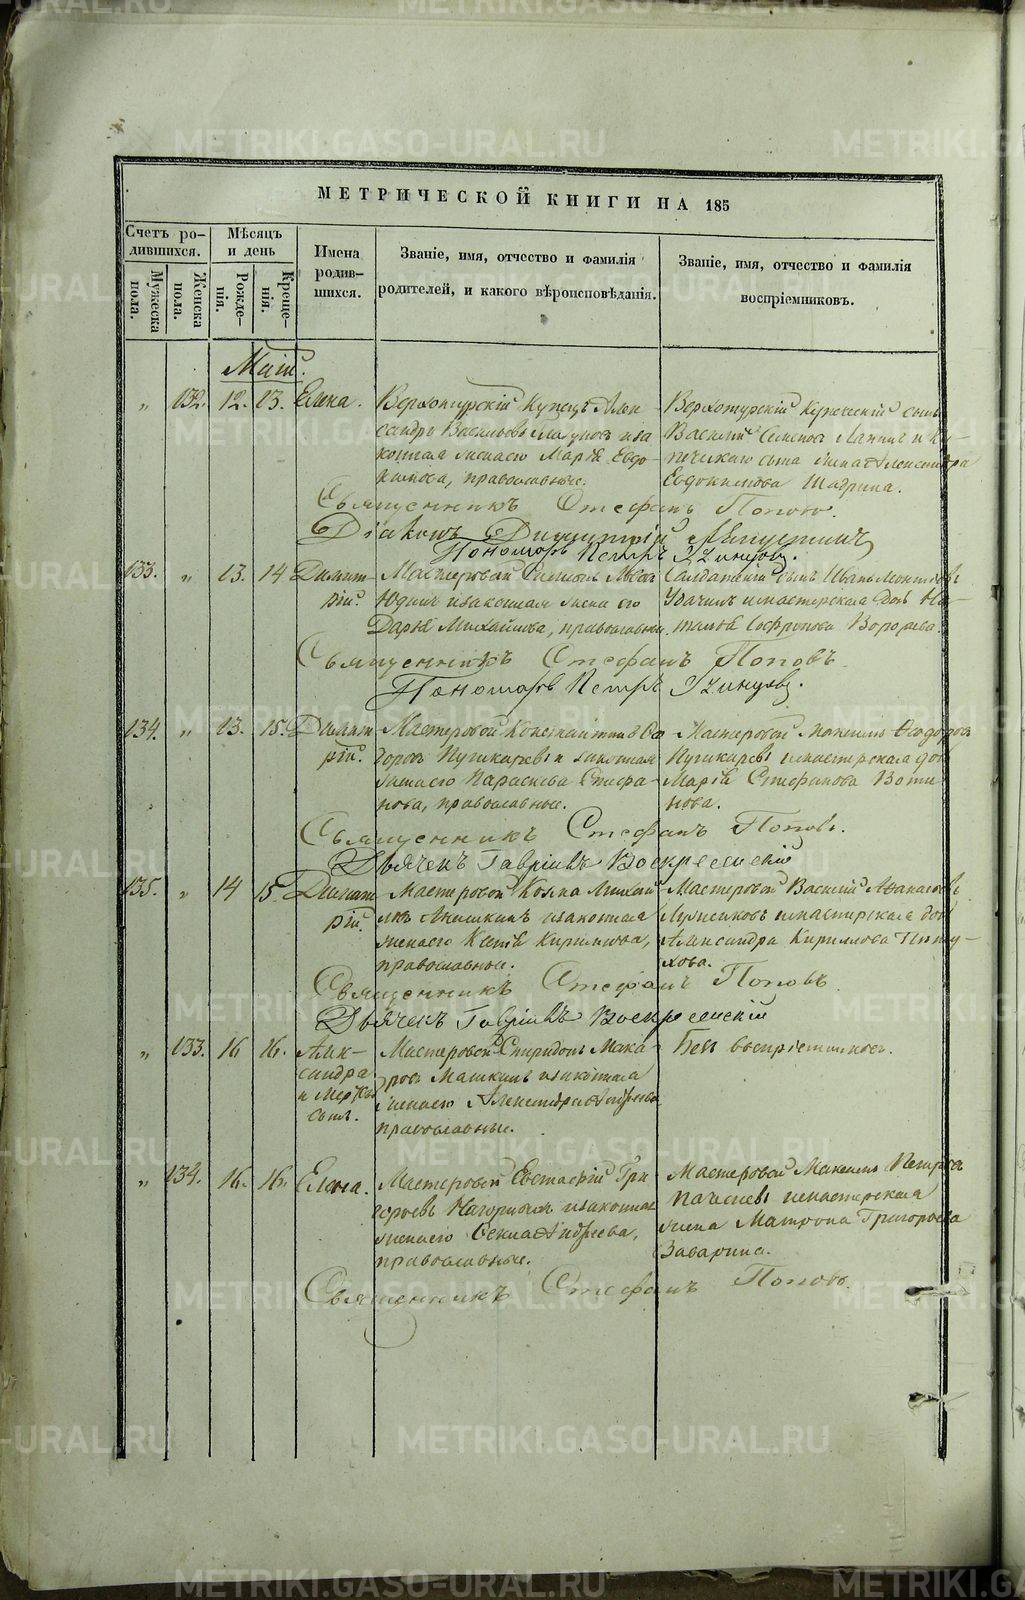 МЕТРИЧЕСКОЙ КНИГИ НА 185
Счетъ ро-
дившихся.
Мужеска
пола.
Женска
пола.
Мѣсяцъ
и день
Рожде-
нія.
Креще-
нія.
Имена
родив-
шихся.
Званіе, имя, отчество и фамилія
родителей, и какого вѣроисповѣданія.
Званіе, имя, отчество и фамилія
воспріемниковъ.
Маій.
„ 132. 12. 13. Елена.
Верхотурскій Купецъ Алек-
сандръ Васильевъ и за
конная жена его Марія Евдо-
кимова, православные.
Верхотурскій Купеческій сынъ
Василій Семеновъ Лапинъ и Ку-
печескаго сына жена Александра
Евдокимова Шадрина.
Священникъ Стефанъ Поповъ.
Діаконъ Димитрій
Пономарь Петръ
133. „ 13. 14 Димит-
рій.
Мастеровой
Юдинъ и законная жена его
Дарья Михайлова, православн.
Солдатскій сынъ Иванъ
и мастерская дочь На-
талья Софронова
Священникъ Стефанъ Поповъ
Пономарь Петръ
134. „ 13. 15. Димит-
рій.
Мастеровой Константинъ Ѳео
доровъ Пушкаревъ и законная
жена его Параскева Стефа-
нова, православные.
Мастеровой Максимъ Ѳеодоровъ
Пушкаревъ и мастерская дочь
Марія Стефанова Воти
нова.
Священникъ Стефанъ Поповъ.
Дьячекъ Гавріилъ Воскресенскій
135. „ 14 15. Димит
рій.
Мастеровой Козма
и законная
жена его Кириллова,
православные.
Мастеровой Василій Аѳанасьевъ
и мастерская дочь
Александра Кириллова Пету-
хова.
Священникъ Стефанъ Поповъ
Дьячекъ Гавріилъ Воскресенскій
„ 133. 16 16. Алек-
сандра
Мастеровой Спиридонъ Мака-
ровъ Машкинъ и законная
жена его Александра Андреева
православные.
Безъ воспріемниковъ.
„ 134. 16. 16. Елена.
Мастеровой Евстафій Гри
горьевъ и законная
жена его Андреева,
православные.
Мастеровой Максимъ Петровъ
и мастерская
жена Матрона Григорьева
Заварина.
Священникъ Стефанъ Поповъ.
METRIKI.GASO-URAL.RU